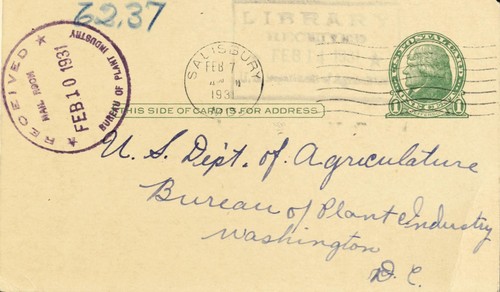 62.37
LIBRARY
RECEIVED
FEB 11 1931
RECEIVED
MAIL ROOM
FEB 10 1931
BUREAU OF PLANT INDUSTRY
SALISBURY
FEB 7
1931
THIS SIDE OF CARD IS FOR ADDRESS
1
1
U. S. Dept. of. Agriculature
Bureau of Plant Industry
Washington
D. C.